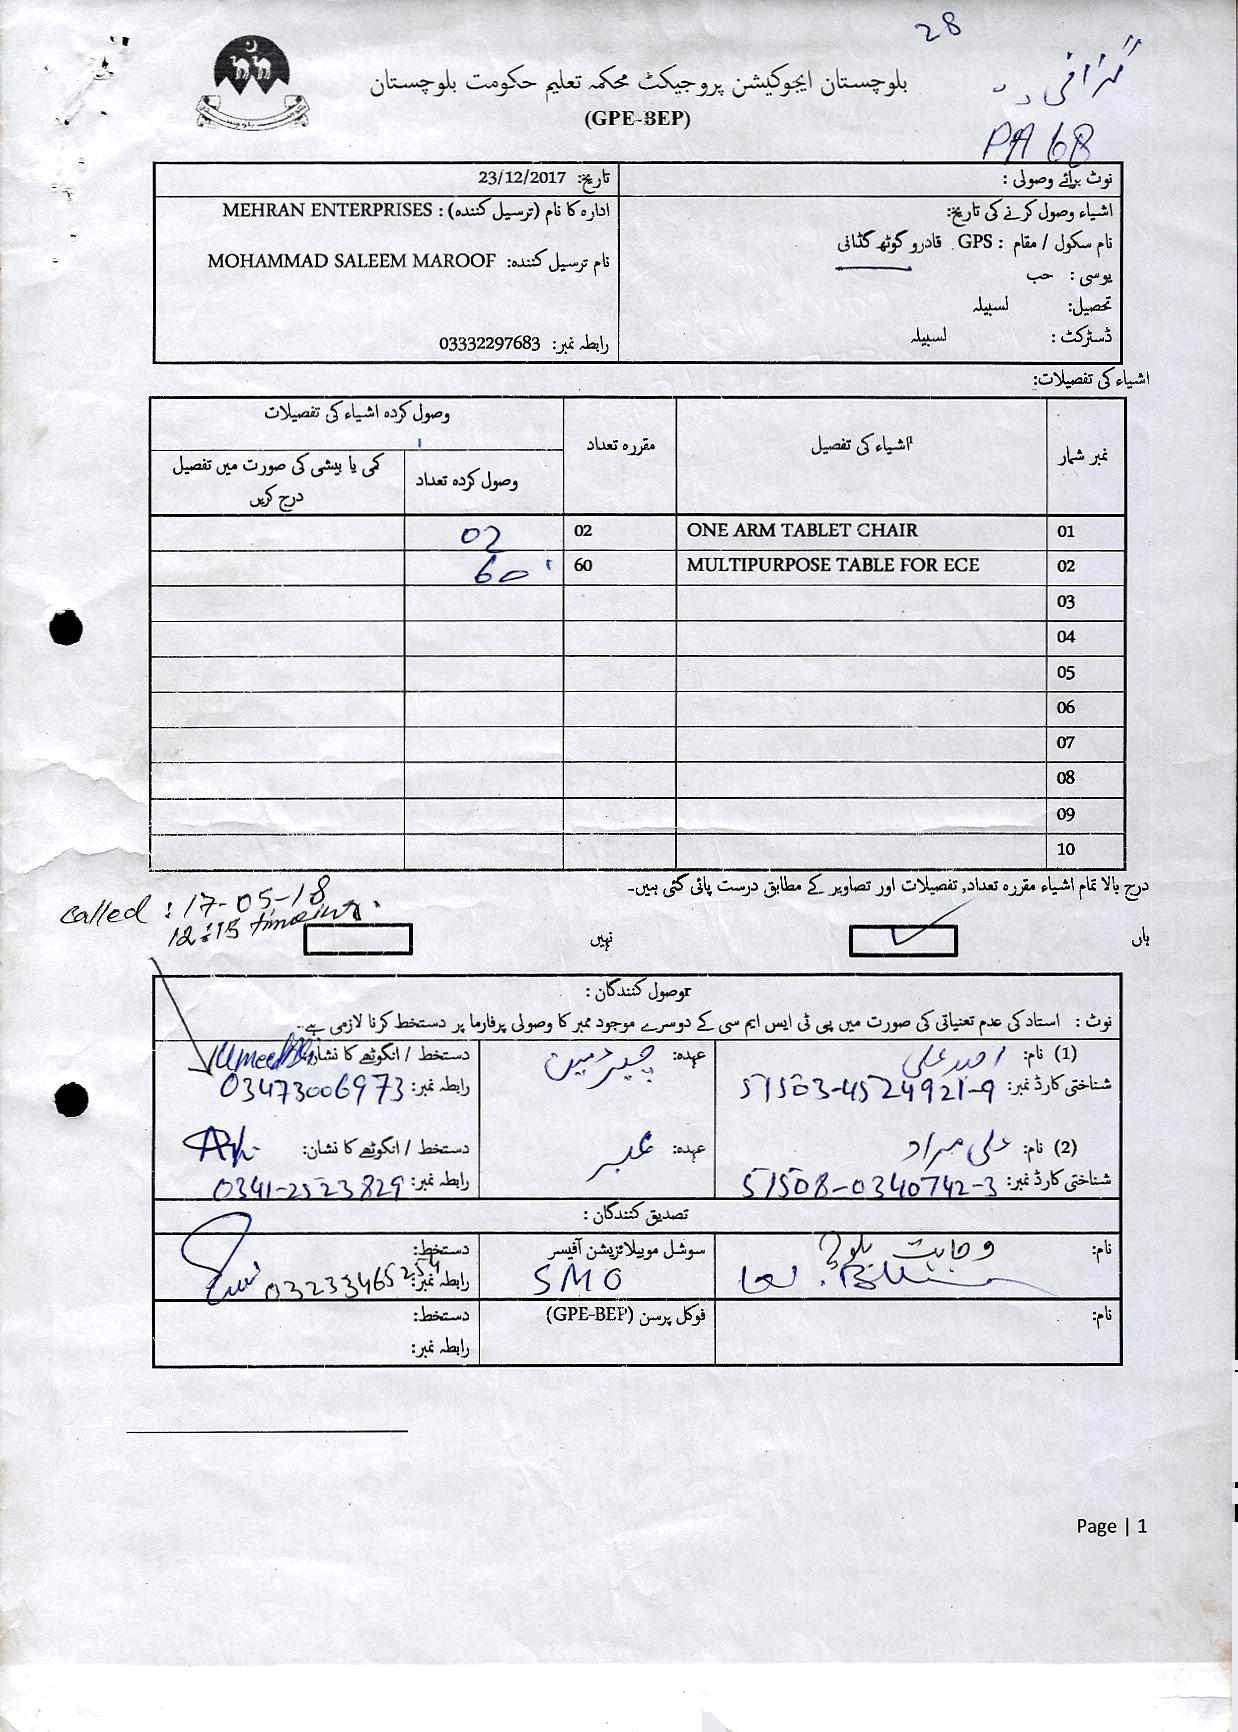 28
PA 6B
بلوچستان ایجوکیشن پروجیکٹ محکمہ تعلیم حکومت بلوچستان
(GPE-BEP)
نوٹ برائے وصولی :
تاریخ: 23/12/2017
اشیاء وصول کرنے کی تاریخ:
ادارہ کا نام (ترسیل کنندہ) : MEHRAN ENTERPRISES
نام سکول / مقام : GPS قادرو گوٹھ گڈانی
نام ترسیل کنندہ: MOHAMMAD SALEEM MAROOF
یوسی : حب
تحصیل: لسبیلہ
ڈسٹرکٹ : لسبیلہ
رابطہ نمبر: 03332297683
اشیاء کی تفصیلات:
نمبر شمار اشیاء کی تفصیل مقررہ تعداد وصول کردہ اشیاء کی تفصیلات
وصول کردہ تعداد کمی یا بیشی کی صورت میں تفصیل درج کریں
01 ONE ARM TABLET CHAIR 02 02
02 MULTIPURPOSE TABLE FOR ECE 60 60
03
04
05
06
07
08
09
10
درج بالا تمام اشیاء مقررہ تعداد, تفصیلات اور تصاویر کے مطابق درست پائی گئی ہیں۔
called : 17-05-18
12:15
ہاں نہیں
وصول کنندگان :
نوٹ : استاد کی عدم تعنیاتی کی صورت میں پی ٹی ایس ایم سی کے دوسرے موجود ممبر کا وصولی پرفارما پر دستخط کرنا لازمی ہے۔
(1) نام: امید علی عہدہ: چیئرمین دستخط / انگوٹھے کا نشان:
شناختی کارڈ نمبر: 51503-4524921-9 رابطہ نمبر: 03473006973
(2) نام: علی مراد عہدہ: ممبر دستخط / انگوٹھے کا نشان:
شناختی کارڈ نمبر: 51508-0340742-3 رابطہ نمبر: 0341-2523829
تصدیق کنندگان :
نام: سوشل موبیلائزیشن آفیسر دستخط:
SMO رابطہ نمبر: 03233465254
نام: فوکل پرسن (GPE-BEP) دستخط:
رابطہ نمبر:
Page | 1